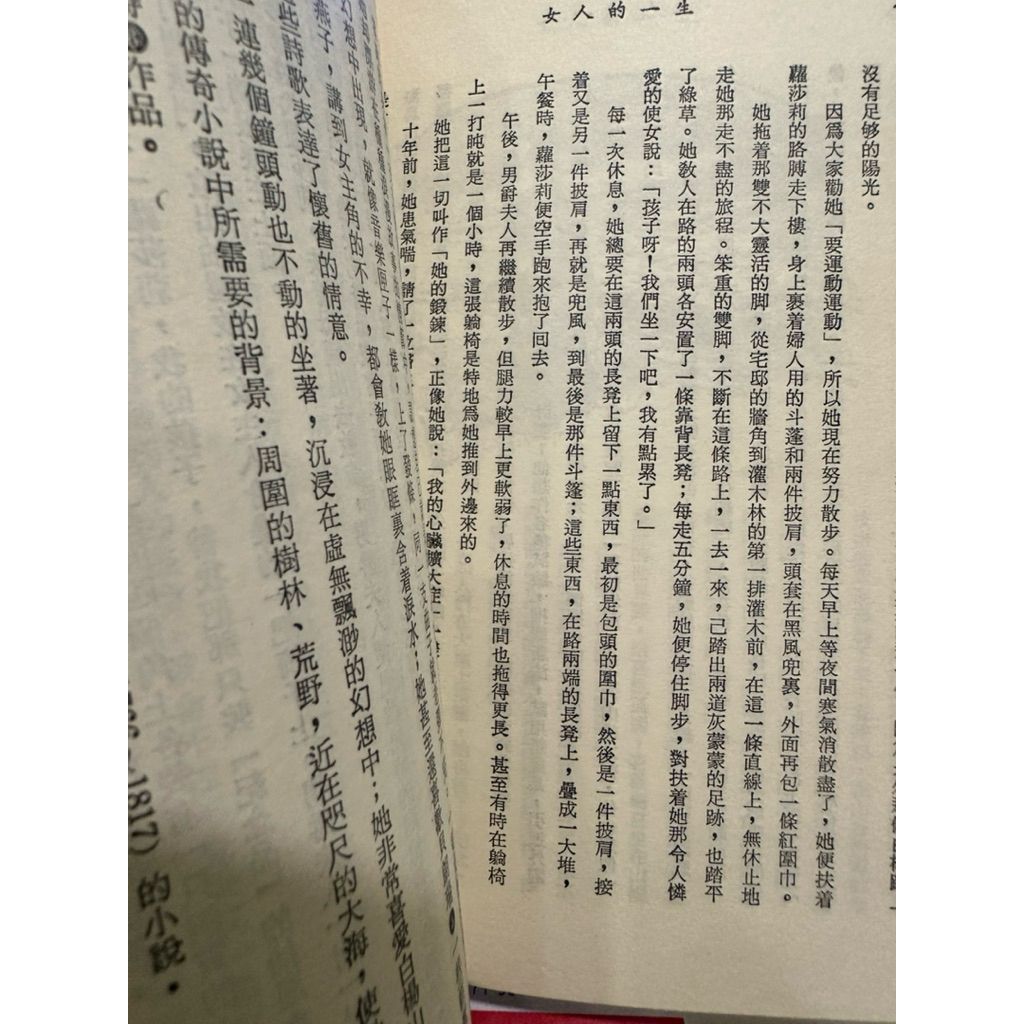 女人的一生
沒有足够的陽光。
因爲大家勸她「要運動運動」，所以她現在努力散步。每天早上等夜間寒氣消散盡了，她便扶着
蘿莎莉的胳膊走下樓，身上裹着婦人用的斗蓬和兩件披肩，頭套在黑風兜裏，外面再包一條紅圍巾。
她拖着那雙不大靈活的脚，從宅邸的牆角到灌木林的第一排灌木前，在這一條直線上，無休止地
走她那走不盡的旅程。笨重的雙脚，不斷在這條路上，一去一來，己踏出兩道灰蒙蒙的足跡，也踏平
了綠草。她教人在路的兩頭各安置了一條靠背長凳；每走五分鐘，她便停住脚步，對扶着她那令人憐
愛的使女說：「孩子呀！我們坐一下吧，我有點累了。」
每一次休息，她總要在這兩頭的長凳上留下一點東西，最初是包頭的圍巾，然後是一件披肩，接
着又是另一件披肩，再就是兜風，到最後是那件斗篷；這些東西，在路兩端的長凳上，疊成一大堆，
午餐時，蘿莎莉便空手跑來抱了回去。
午後，男爵夫人再繼續散步，但腿力較早上更軟弱了，休息的時間也拖得更長。甚至有時在躺椅
上一打盹就是一個小時，這張躺椅是特地爲她推到外邊來的。
她把這一切叫作「她的鍛鍊」，正像她說：「我的心臟擴大症
十年前，她患氣喘，請了一
幻想中出現，就像音樂匣子一樣，上了發條，同一支
燕子，講到女主角的不幸，都會敎她眼眶裏含着淚水；她甚至
些詩歌表達了懷舊的情意。
連幾個鐘頭動也不動的坐著，沉浸在虛無飄渺的幻想中；她非常喜愛白楊山
的傳奇小說中所需要的背景：周圍的樹林、荒野，近在咫尺的大海，使
作品。
1817）的小說。